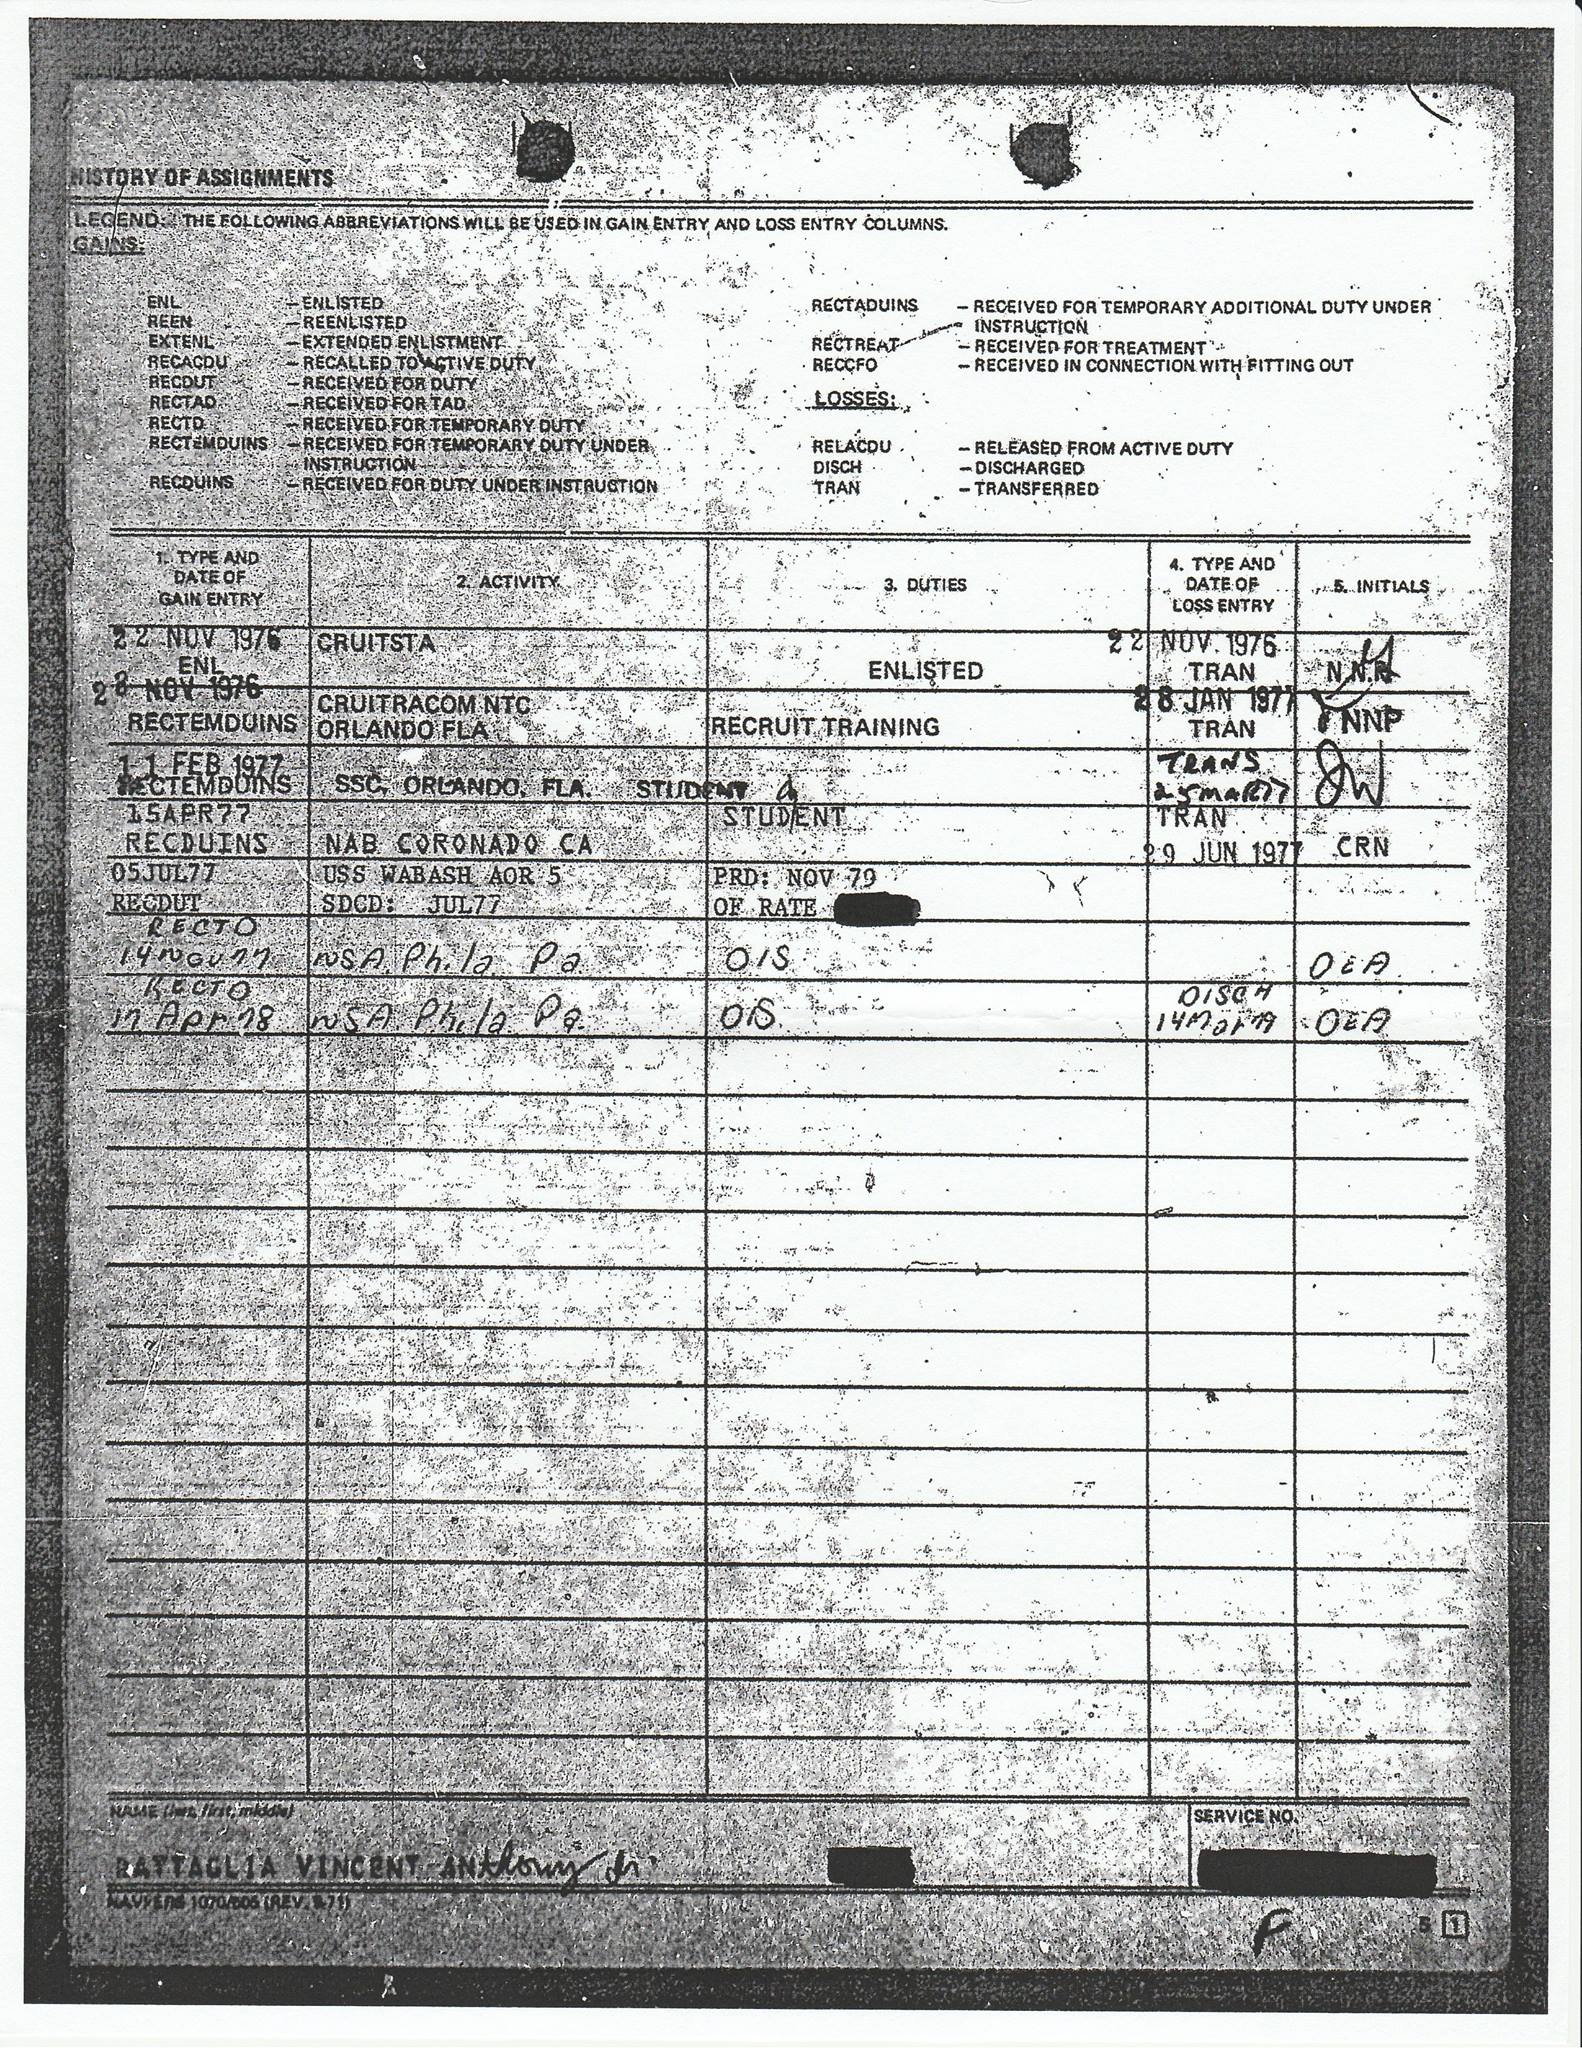 HISTORY OF ASSIGNMENTS
LEGEND: THE FOLLOWING ABBREVIATIONS WILL BE USED IN GAIN ENTRY AND LOSS ENTRY COLUMNS.
GAINS:
ENL – ENLISTED
REEN – REENLISTED
EXTENL – EXTENDED ENLISTMENT
RECACDU – RECALLED TO ACTIVE DUTY
RECDUT – RECEIVED FOR DUTY
RECTAD – RECEIVED FOR TAD
RECTD – RECEIVED FOR TEMPORARY DUTY
RECTEMDUINS – RECEIVED FOR TEMPORARY DUTY UNDER
INSTRUCTION
RECDUINS – RECEIVED FOR DUTY UNDER INSTRUCTION
RECTADUINS – RECEIVED FOR TEMPORARY ADDITIONAL DUTY UNDER
INSTRUCTION
RECTREAT – RECEIVED FOR TREATMENT
RECCFO – RECEIVED IN CONNECTION WITH FITTING OUT
LOSSES:
RELACDU – RELEASED FROM ACTIVE DUTY
DISCH – DISCHARGED
TRAN – TRANSFERRED
1. TYPE AND
DATE OF
GAIN ENTRY
2. ACTIVITY
3. DUTIES
4. TYPE AND
DATE OF
LOSS ENTRY
5. INITIALS
22 NOV 1976 CRUITSTA 22 NOV. 1976
ENL ENLISTED TRAN N.N.P.
28 NOV 1976 CRUITRACOM NTC 28 JAN 1977
RECTEMDUINS ORLANDO FLA RECRUIT TRAINING TRAN NNP
11 FEB 1977 TRANS JW
RECTEMDUINS SSC, ORLANDO, FLA. STUDENT 25MAR77
15APR77 STUDENT TRAN
RECDUINS NAB CORONADO CA 29 JUN 1977 CRN
05JUL77 USS WABASH AOR 5 PRD: NOV 79
RECDUT SDCD: JUL77 OF RATE
RECTD
14Nov77 NSA Phila Pa. OIS OEA
RECTD DISCH
17 Apr 78 NSA Phila Pa. OIS OEA
NAME (last, first, middle) SERVICE NO.
BATTAGLIA VINCENT ANthony Jr.
NAVPERS 1070/605 (REV. 8-71)
F
5 1